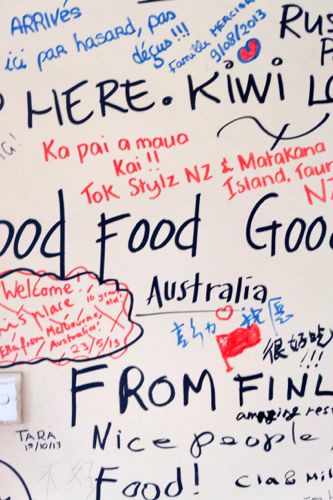 ARRIVÉS
ici par hasard, pas
déçus !!!
famille MERCIER
9/08/2013
Rus
HERE. KIWI LO
Ka pai a maua
Kai !!
TOK STYLZ NZ & Matakana
Island, Taur
NZ
ood Food Goo
Welcome!
10 years old!
place
from Melbourne
Australia!
23/5/13
Australia
很好吃
!!!
FROM FINL
amazing res
TARA
12/10/13
Nice people
不好
Food!